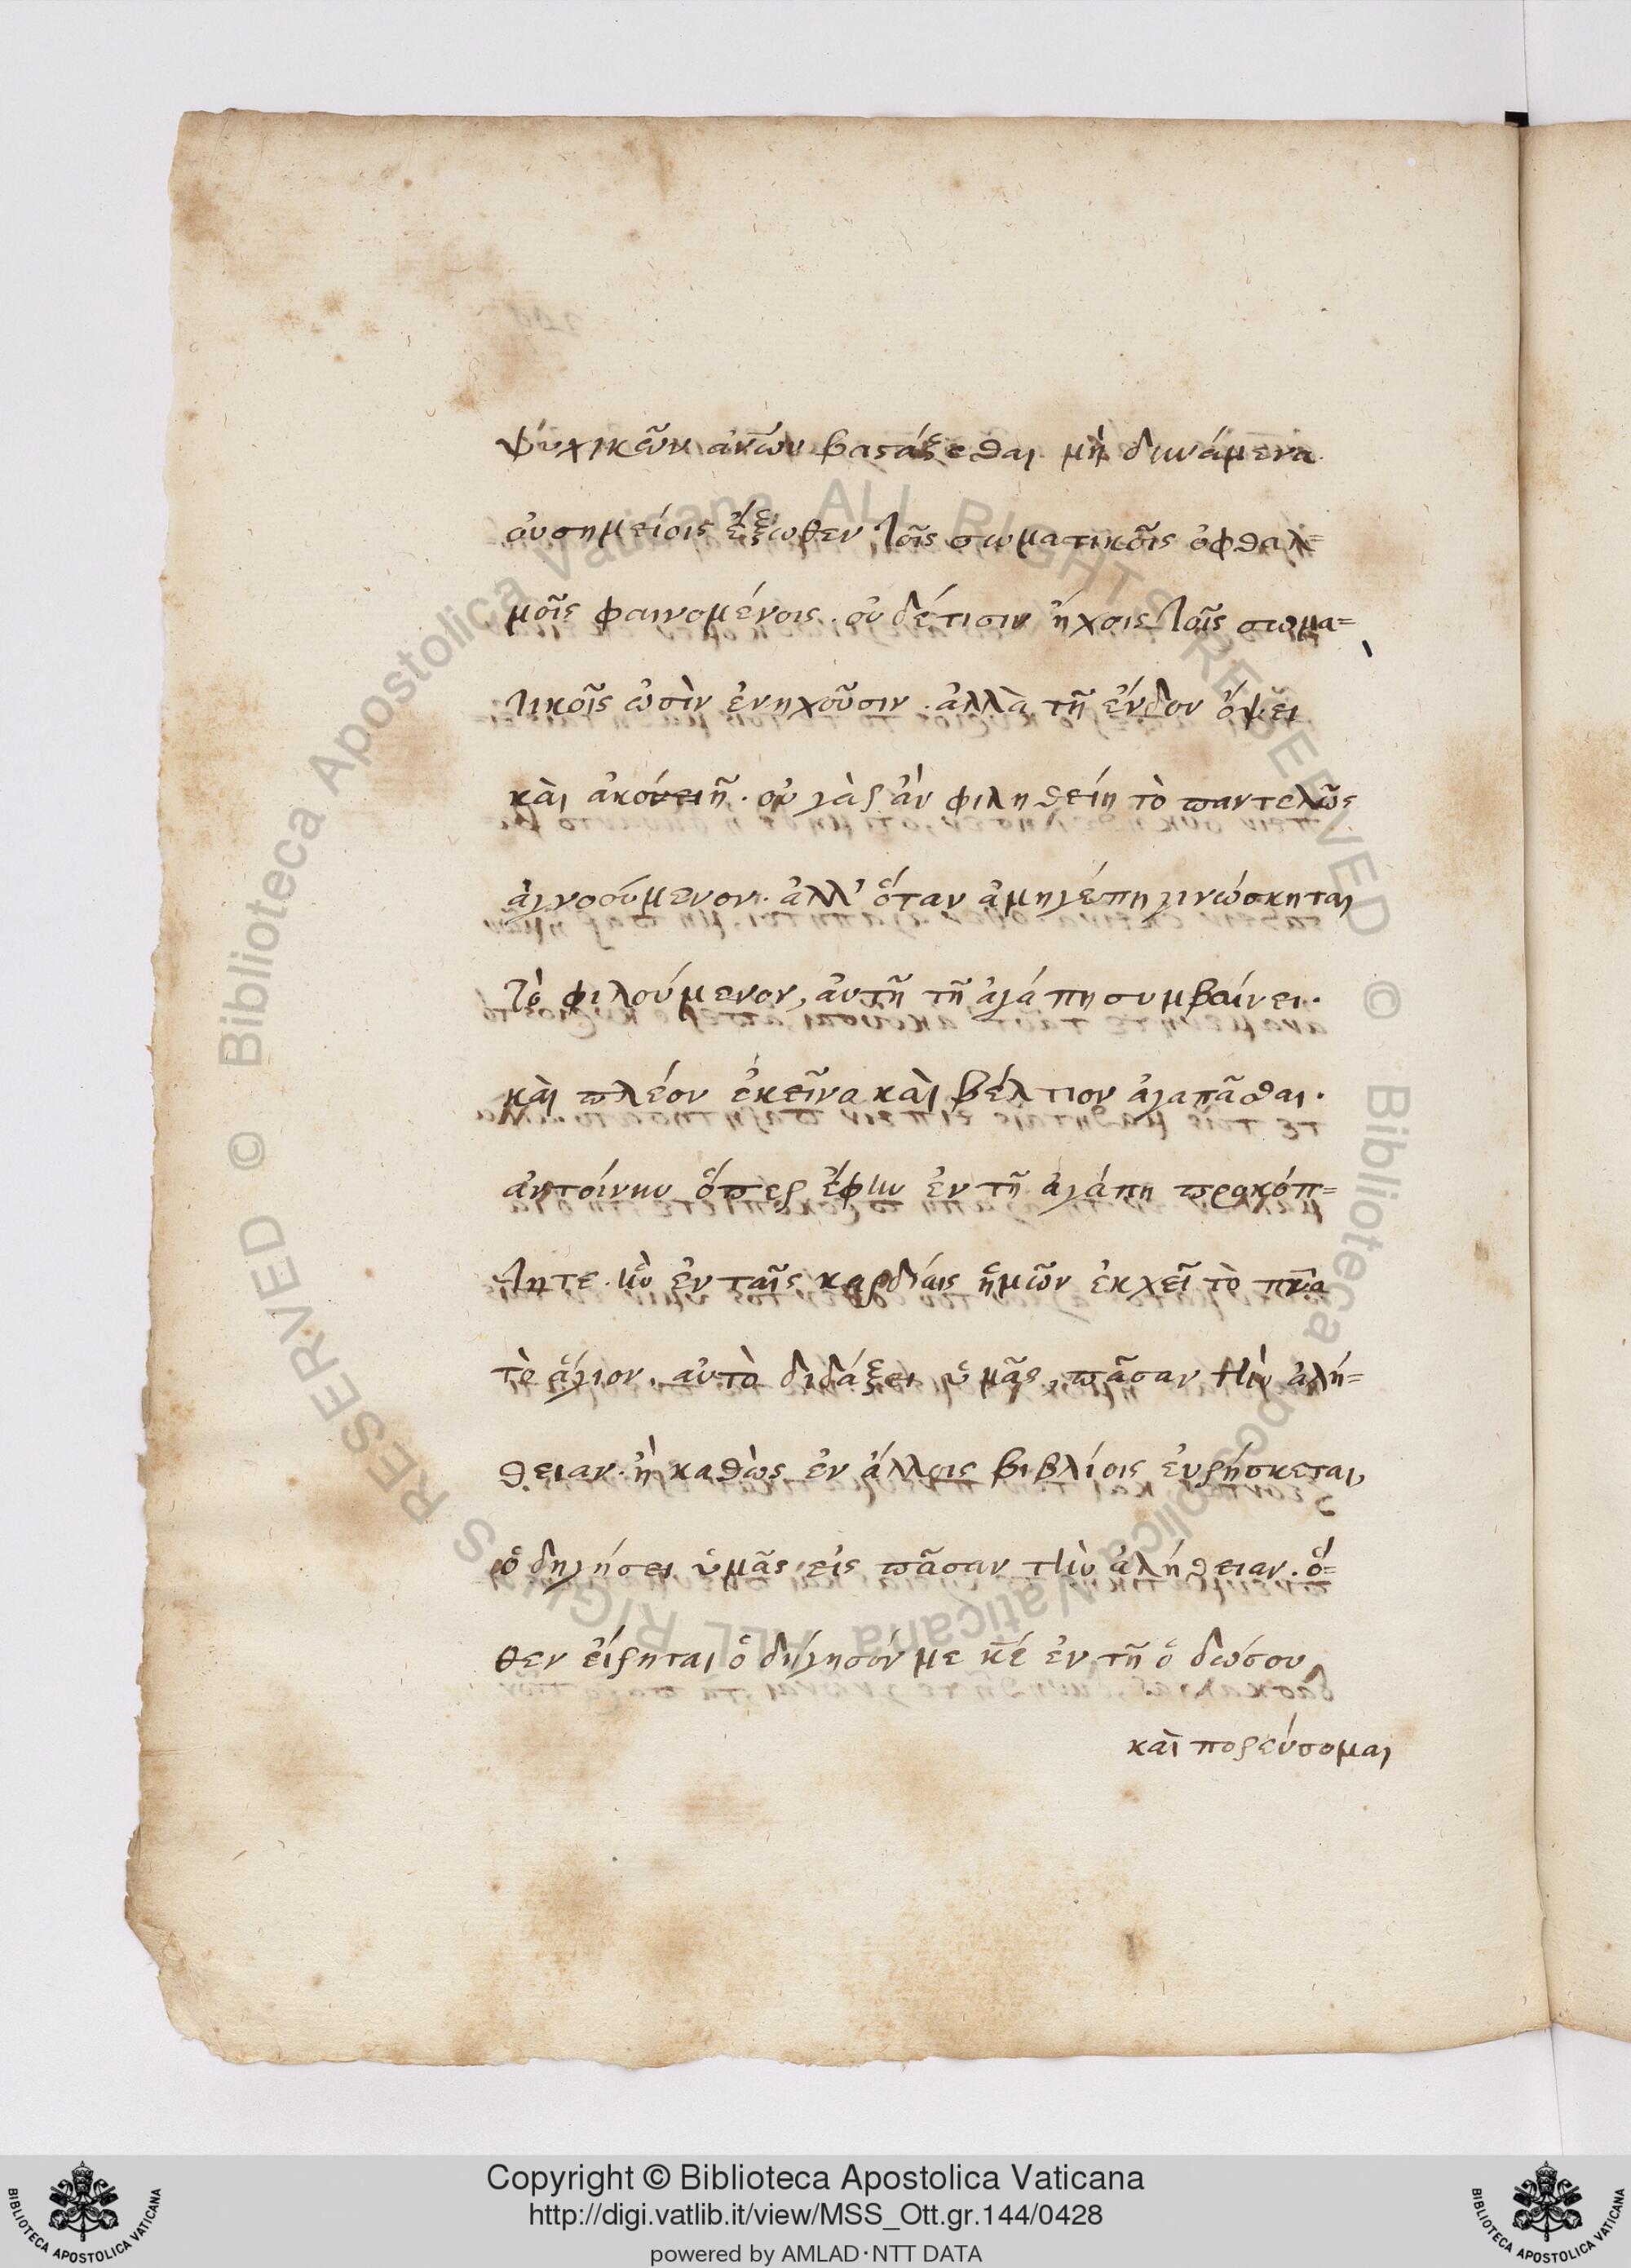 ψυχικῶν ἀκῶν βαστάζεσθαι μὴ δυνάμενα
οὐσημείοις ἔξωθεν τοῖς σωματικοῖς ὀφθαλ=
μοῖς φαινομένοις. οὐδέτισιν ἤχοις τοῖς σωμα=
τικοῖς ὠσὶν ἐνηχοῦσιν. ἀλλὰ τῇ ἔνδον ὄψει
καὶ ἀκοῇ. οὐ γὰρ ἂν φιληθείη τὸ παντελῶς
ἀγνοούμενον. ἀλλ' ὅταν ἀμηγέπη γινώσκηται
τὸ φιλούμενον, αὐτῇ τῇ ἀγάπη συμβαίνει.
καὶ πλέον ἐκεῖνο καὶ βέλτιον ἀγαπᾶσθαι.
ἀντοίνυν ὅπερ ἔφην ἐν τῇ ἀγάπη προκόπ=
τητε. ἣν ἐν ταῖς καρδίαις ἡμῶν ἐκχεῖ τὸ πνα
τὸ ἅγιον. αὐτὸ διδάξει ὑμᾶς, πᾶσαν τὴν ἀλή=
θειαν. ἢ καθὼς ἐν ἄλλοις βιβλίοις εὑρήσκεται,
ὁδηγήσει ὑμᾶς εἰς πᾶσαν τὴν ἀλήθειαν. ὅ=
θεν εἴρηται ὁδήγησόν με κε ἐν τῇ ὁδῶσου
καὶ πορεύσομαι
Copyright © Biblioteca Apostolica Vaticana
http://digi.vatlib.it/view/MSS_Ott.gr.144/0428
powered by AMLAD·NTT DATA